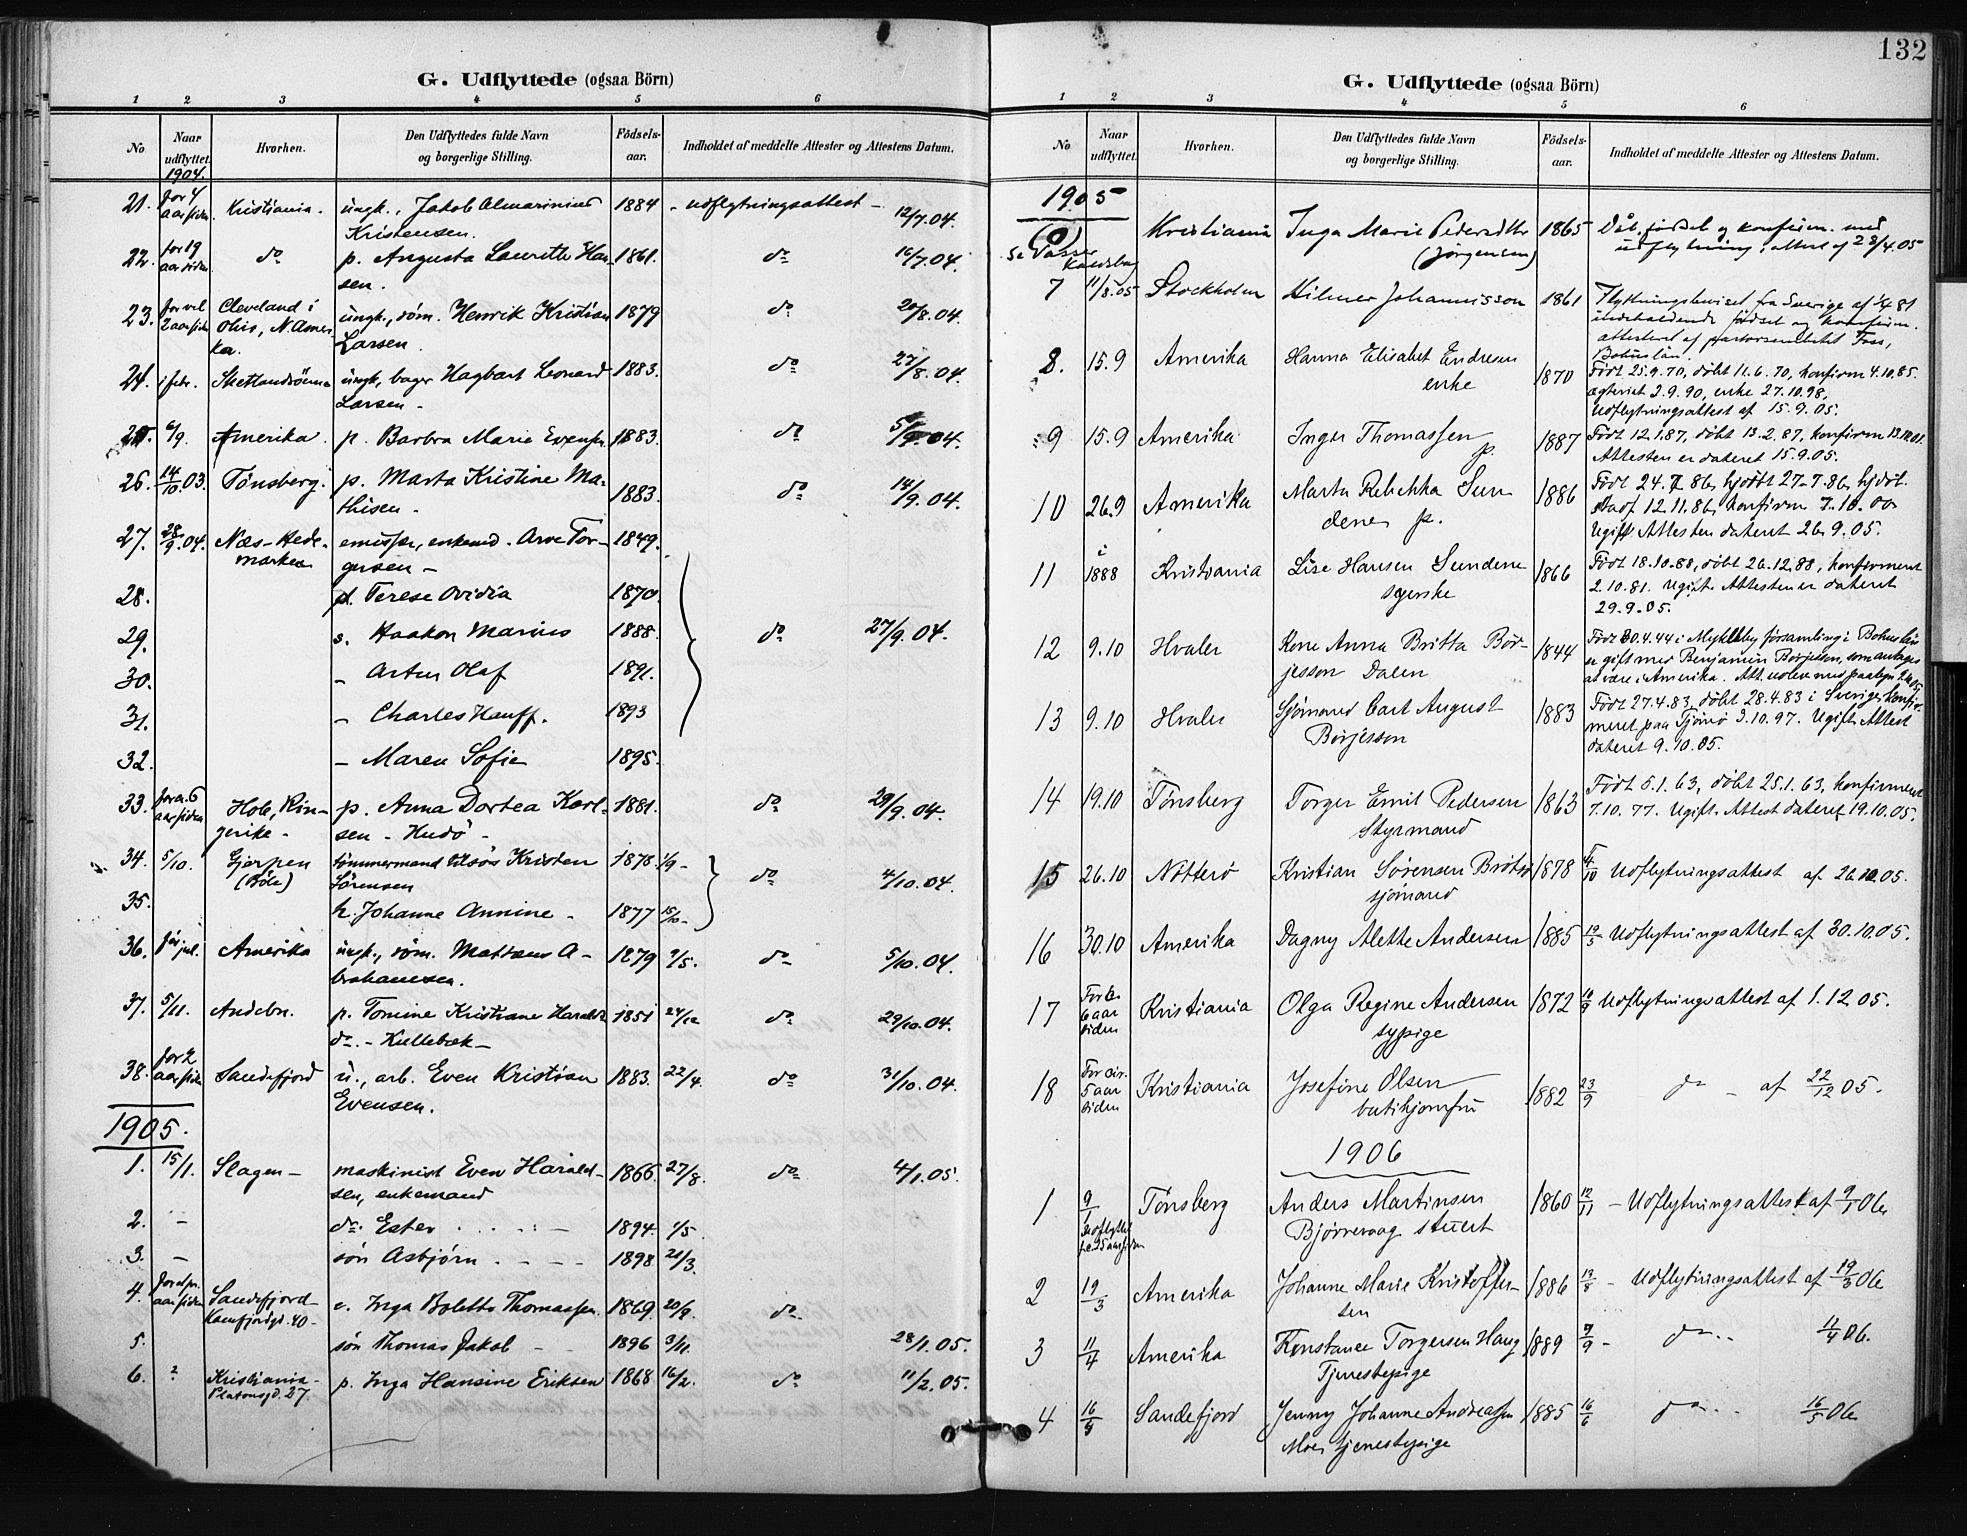 132
G. Udflyttede (ogsaa Börn)
1 2 3 4 5 6
No Naar udflyttet. Hvorhen. Den Udflyttedes fulde Navn og borgerlige Stilling. Födselsaar. Indholdet af meddelte Attester og Attestens Datum.
1904.
21. for 4 aar siden Kristiania. ungk., Jakob Almarinius 1884 - udflytningsattest - 12/7.04.
Kristensen.
22. for 19 aar siden do p. Augusta Laurette Han- 1861. do 16/7.04.
sen.
23. for vel 2 aar siden Cleveland i Ohio, N. Amerika. ungk., söm. Henrik Kristian 1879 do 20/8.04.
Larsen.
24. i febr. Shetlandsöerne ungk, bager Hagbart Leonard 1883. do 27/8.04.
Larsen -
25. 6/9. Amerika. p. Barbra Marie Evensen 1883. do 5/9.04.
26. 14/10.03. Tønsberg. p. Marta Kristine Ma- 1883. do 14/9.04.
thisen -
27. 28/9.04. Næs-Hedemarken emisær, enkemd. Arve Tor- 1849.
gersen -
28. d. Terese Ovidia 1870.
29. s. Haakon Marius 1888. do 27/9.04.
30. - Artur Olaf 1891.
31. - Charles Hauff. 1893
32. - Maren Sofie 1895.
33. for ca. 6 aar siden Hole, Ringerike - p. Anna Dortea Karl- 1881. do 29/9.04.
sen - Hudö -
34. 5/10. Gjerpen tömmermand Kristen 1878. 1/9 - do 4/10.04.
Sörensen
35. h. Johanne Annine - 1877 15/10 -
36. før jul. Amerika ungk., söm. Mattæus A- 1879 9/5. do 5/10.04.
brahamsen.
37. 5/11. Andebu. p. Tomine Kristiane Haralds- 1851 24/12 do 29/10.04.
dr. - Kullebæk -
38. for 2 aar siden Sandefjord u., arb. Even Kristian 1883. 22/4. do 31/10.04.
Evensen.
1905.
1. 15/1. Slagen - maskinist Even Harald- 1866. 27/8. do 4/1.05.
sen, enkemand
2. - dr. Ester 1894. 1/5.
3. - sön Asbjörn 1898. 21/3.
4. Sandefjord e. Inga Bolette Thomassen. 1869. 20/9. do
5. sön Thomas Jakob - 1896 3/11. 28/1.05.
6. ? Kristiania - Platousgd. 27. p. Inga Hansine Eriksen 1868 16/2. do 11/2.05.
G. Udflyttede (ogsaa Börn)
1 2 3 4 5 6
No Naar udflyttet. Hvorhen. Den Udflyttedes fulde Navn og borgerlige Stilling. Födsels-aar. Indholdet af meddelte Attester og Attestens Datum.
1905
Kristiania Inga Marie Pedersdtr 1865 Dåb, födsel og konfirm. med
(Jørgensen) udflytning, attest af 28/4.05
7 11/8.05 Stockholm Hilmer Johannisson 1861 Flytningsbeviset fra Sverige af 81
indeholdende födsel og konfirm.
attesteret af pastorsembetet
Bohuslän.
8. 15.9 Amerika Hanna Elisabet Endresen 1870 Födt 25.9.70, döbt 11.6.70, konfirm 4.10.85.
enke ægteviet 2.9.90, enke 27.10.98,
Udflytningsattest af 15.9.05.
9 15.9 Amerika Inger Thomassen p. 1887 Födt 12.1.87, döbt 13.2.87, konfirm 13.10.01.
Attesten er dateret 15.9.05.
10 26.9 Amerika Marta Rebekka Sun- 1886 Födt 24.7.86, hjdöbt 27.7.86, hjdöb.
dene p. stadf. 12.11.86, konfirm 7.10.00
Ugift. Attesten dateret 26.9.05.
11 i 1888 Kristiania Lise Hansen Sundene 1866 Födt 18.10.88, döbt 26.12.88, konfirmeret
syerske 2.10.81. Ugift. Attesten er dateret
29.9.05.
12 9.10 Hvaler Kone Anna Britta Bör- 1844 Födt 30.4.44 i Mykleby forsamling i Bohuslän
jesson Dalen er gift med Benjamin Börjesson, som antages
at være i Amerika.
13 9.10 Hvaler Sjömand Carl August 1883 Födt 27.4.83, döbt 28.4.83 i Sverige, konfir-
Börjesson meret paa Tjömö 3.10.97. Ugift. Attest
dateret 9.10.05.
14 19.10 Tönsberg Torger Emil Pedersen 1863 Födt 5.1.63, döbt 25.1.63, konfirmeret
Styrmand 7.10.77. Ugift. Attest dateret 19.10.05.
15 26.10 Nötterö Kristian Sörensen Brötsö 1878 Udflytningsattest af 26.10.05.
sjömand
16 30.10 Amerika Dagny Alette Andersen 1885 19/5 Udflytningsattest af 30.10.05.
17 For ca. 6 aar siden Kristiania Olga Regine Andersen 1872 Udflytningsattest af 1.12.05.
sypige
18 For cir. 5 aar siden Kristiania Josefine Olsen 1882 23/9 do - af 22/12 05.
butikjomfru
1906
1 9/1 Tönsberg Anders Martinsen 1860 12/11 - Udflytningsattest af 9/1 06
Bjørnevaag stuert
2 19/3 Amerika Johanne Marie Kristoffer- 1886 13/8 - Udflytningsattest af 19/3 06
sen
3 11/4 Amerika Konstance Torgersen Haug 1889 7/9 - do - - 11/4 06.
Tjenestepige
4 16/5 Sandefjord Jenny Johanne Andreassen 1885 16/6 do - - 16/5 06
Moe, tjenestepige